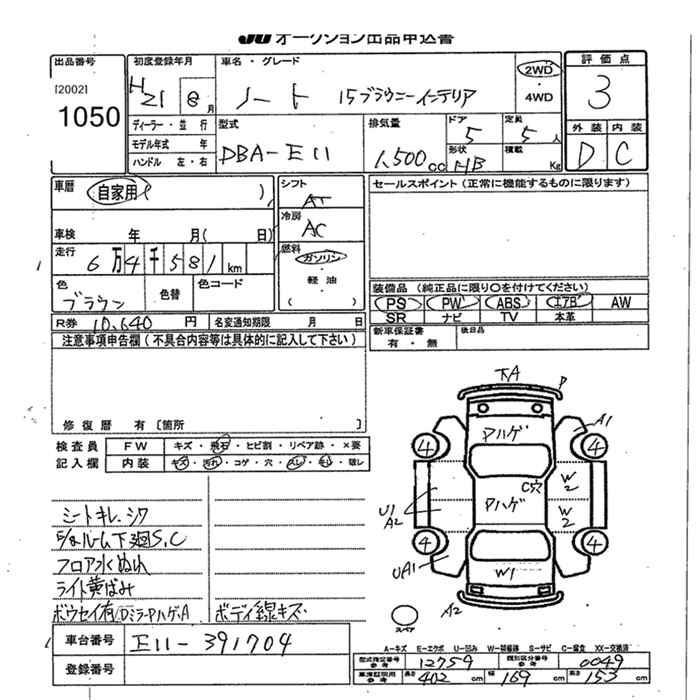 JU オークション出品申込書
出品番号
[2002]
1050
初度登録年月
H21 8月
車名・グレード
ノート 15ブラウニーインテリア
2WD
・
4WD
評価点
3
外装 内装
D C
ディーラー・並行
モデル年式 年
ハンドル 左・右
型式
DBA-E11
排気量
1,500cc
ドア
5
形状
HB
定員
5人
積載
Kg
車歴
自家用( )
シフト
AT
冷房
AC
燃料
ガソリン
・
軽油
( )
車検 年 月( 日)
走行
6万4千581km
色
ブラウン
色替
色コード
R券 10,640円
名変通知期限 月 日
セールスポイント(正常に機能するものに限ります)
装備品(純正品に限り○を付けてください)
PS PW ABS エアB AW
SR ナビ TV 本革
新車保証書
有・無
後日品
注意事項申告欄(不具合内容等は具体的に記入して下さい)
修復歴 有[箇所 ]
検査員
記入欄
FW キズ・飛石・ヒビ割・リペア跡・×要
内装 キズ・汚れ・コゲ・穴・スレ・キレ・破レ
シートキレ.シワ
ルーム下廻S.C
フロア水ぬれ
ライト黄ばみ
ボウセイ有 DミラーPハゲ.A
ボディ線キズ・
下A
P
A1
Pハゲ
4
4
C穴
W2
Pハゲ
U1
A2
W2
4
4
UA1
W1
A2
スペア
A-キズ E-エクボ U-凹み W-補修跡 S-サビ C-腐食 XX-交換済
車台番号
E11-391704
登録番号
型式指定番号
参考
12759
類別区分番号
参考
0049
車庫証明用
参考
長さ 402cm
幅 169cm
高さ 153cm